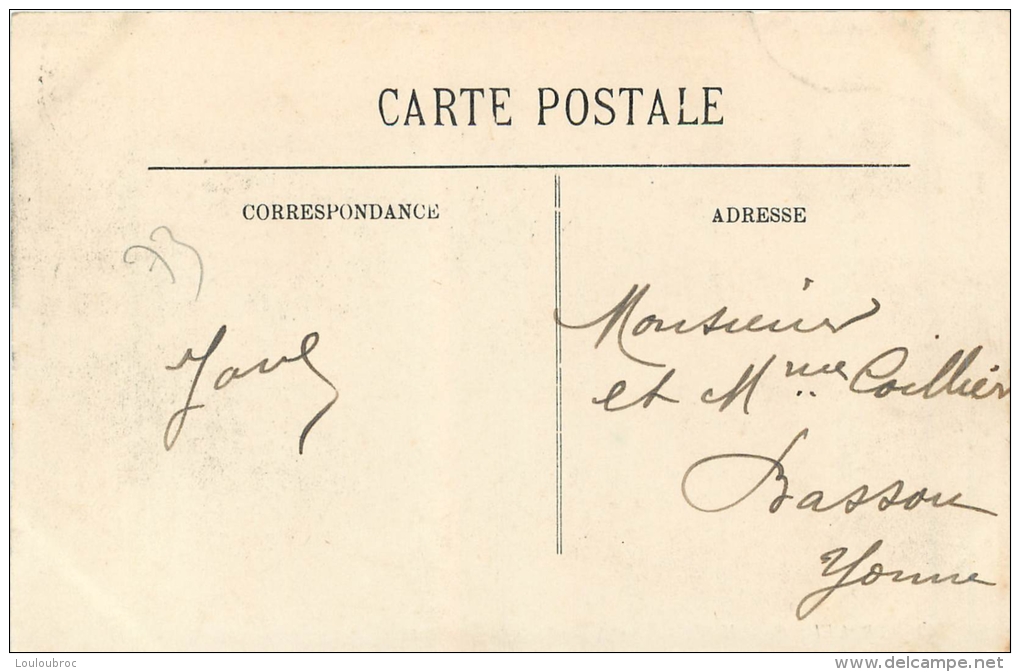 CARTE POSTALE
CORRESPONDANCE
ADRESSE
Monsieur
et Mme Caillier
Bassou
Yonne
Louloubroc
www.delcampe.net